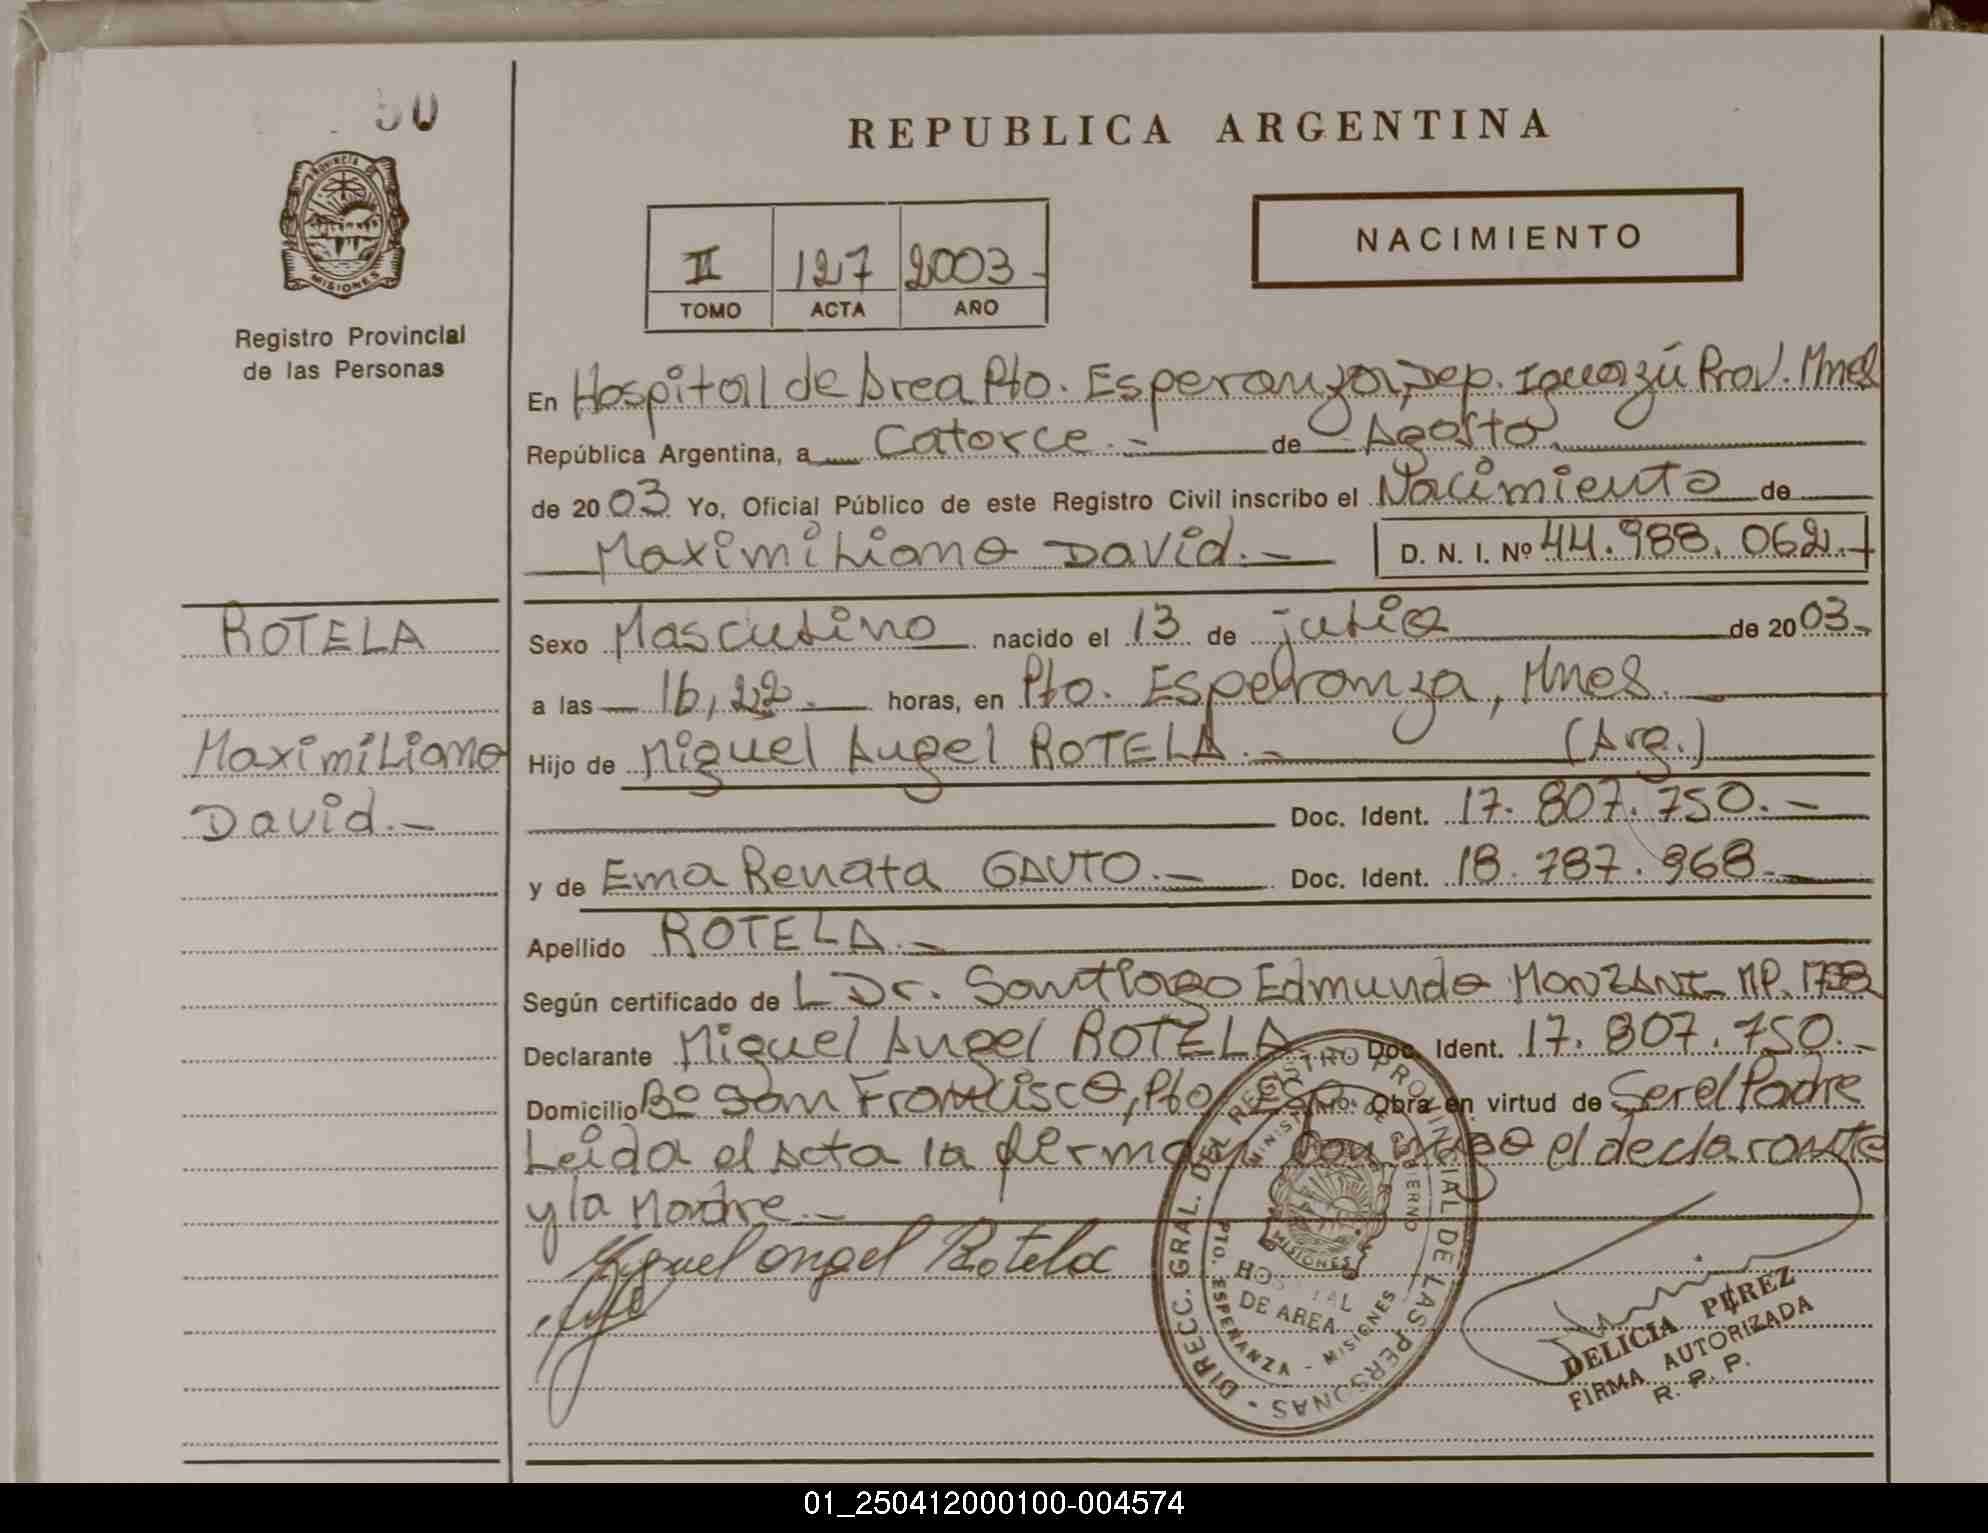 50
PROVINCIA DE
MISIONES
Registro Provincial
de las Personas
REPUBLICA ARGENTINA
II 127 2003.-
TOMO ACTA AÑO
NACIMIENTO
En Hospital de Area Pto. Esperanza, Dep. Iguazú Prov. Mnes
República Argentina, a Catorce.- de Agosto
de 2003 Yo, Oficial Público de este Registro Civil inscribo el Nacimiento de
Maximiliano David.- D. N. I. Nº 44.988.062.-
ROTELA
Maximiliano
David.-
Sexo Masculino nacido el 13 de julio de 2003.-
a las 16,22.- horas, en Pto. Esperanza, Mnes.
Hijo de Miguel Angel ROTELA.- (Arg.)
Doc. Ident. 17.807.750.-
y de Ema Renata GAUTO.- Doc. Ident. 18.787.968.-
Apellido ROTELA.-
Según certificado de L Dr. Santiago Edmundo MONZANI MP.
Declarante Miguel Angel ROTELA Doc. Ident. 17.807.750.-
Domicilio Bº San Francisco, Pto Esp. Obra en virtud de Ser el Padre
Leida el Acta la firman conmigo el declarante
y la Madre.-
Miguel angel Rotela
DIRECC. GRAL. DEL REGISTRO PROVINCIAL DE LAS PERSONAS
MINIST. DE GOBIERNO
MISIONES
HOSPITAL
DE AREA
PTO. ESPERANZA - MISIONES
DELICIA PEREZ
FIRMA AUTORIZADA
R. P. P.
01_250412000100-004574